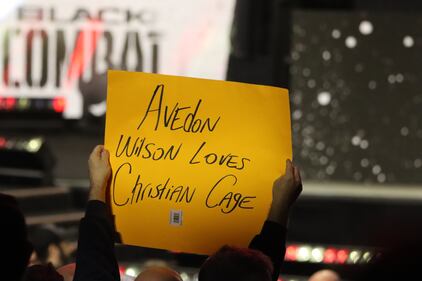 BLACK
COMBAT
AVEDON
WILSON LOVES
CHRISTIAN CAGE